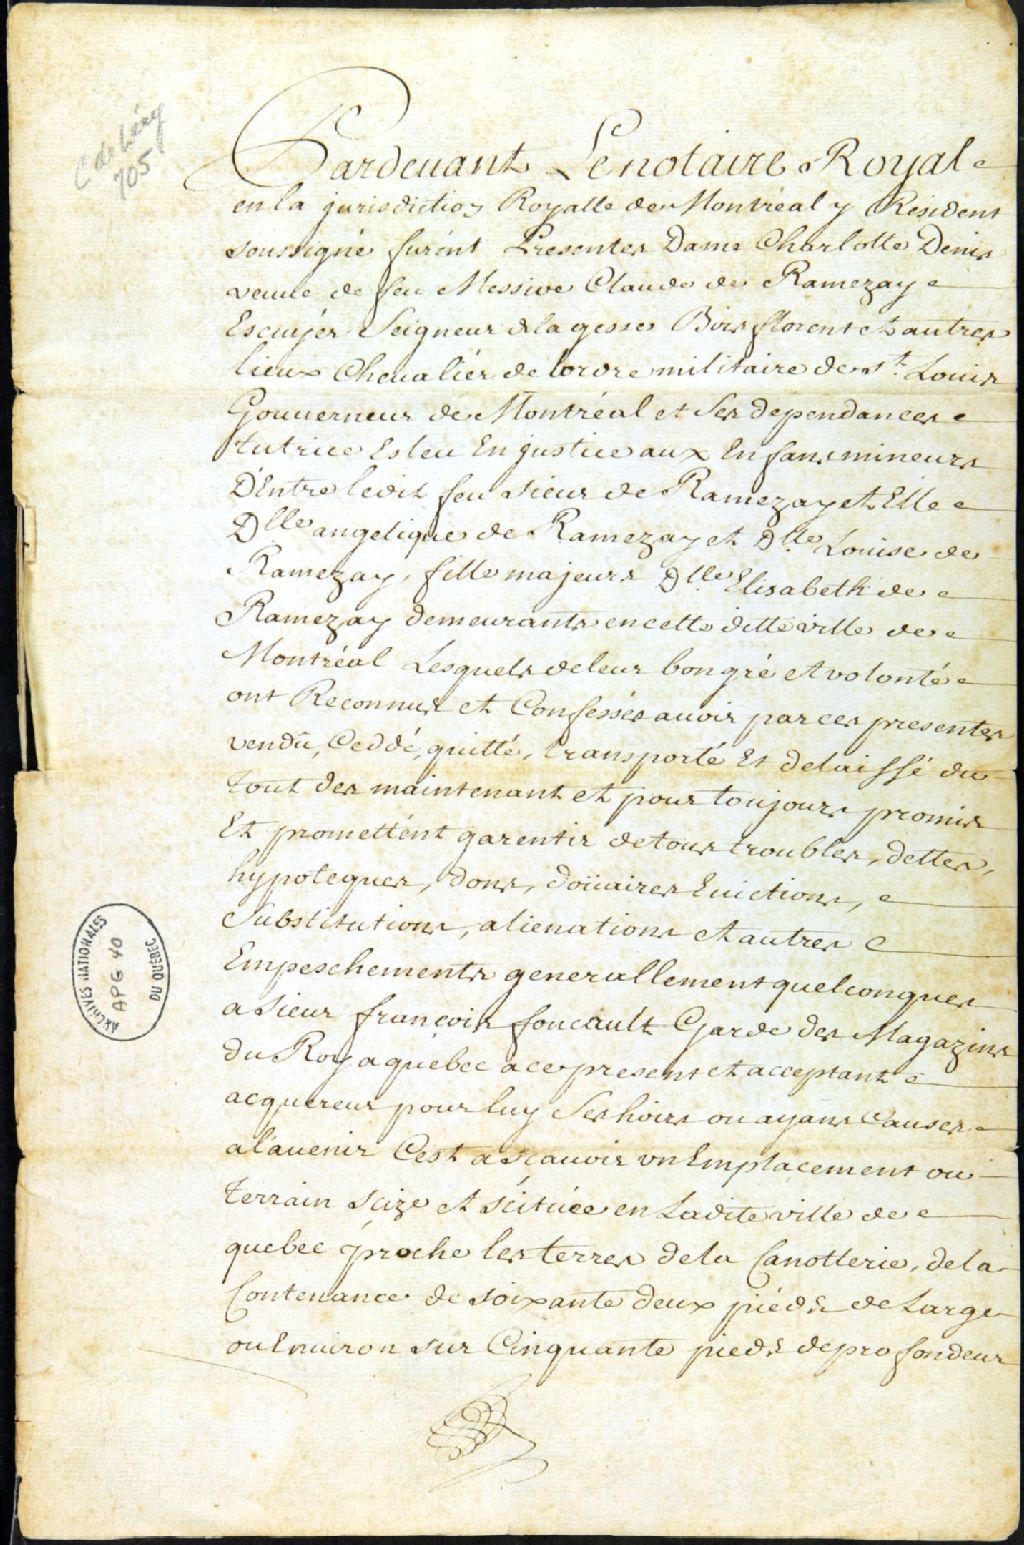 C de Léry
705
Pardevant Le notaire Royal
en la jurisdiction Royalle de Montréal y Résident
soussigné furent Presentes Dame Charlotte Denis
veuve de feu Messire Claude de Ramezay
Escuyér Seigneur de la gesse Bois florent et autres
lieux Chevaliér de lordre militaire de St. Louis
Gouverneur de Montréal et Ses dependances
tutrice Esleu En justice aux Enfans mineurs
D'Entre ledit feu sieur de Ramezay et Elle
Dlle angelique de Ramezay et Dlle Louise de
Ramezay, fille majeurs Dlle Elisabeth de
Ramezay demeurants en cette ditte ville de
Montréal Lesquels de leur bon gré et volonté
ont Reconnus et Confessés avoir par ces presentes
vendu, Ceddé, quitté, transporté Et delaissé du
tout des maintenant et pour toujours promis
Et promettént garentir de tous troubles, dettes,
hypoteques, dons, doüaires Evictions,
Substitutions, alienations et autres
Empeschements generallement quelconques
a sieur françois foucault Garde des Magazins
du Roy a québec a ce present et acceptant
acquereur pour luy Ses hoirs ou ayans Causes
a l'avenir C'est a sçavoir un Emplacement ou
terrain scize et scituée en Ladite ville de
quebec proche les terres de la Canotterie, de la
Contenance de soixante deux piéds de Large
ou Environ sur Cinquante pieds de profondeur
ARCHIVES NATIONALES
APG 40
DU QUÉBEC